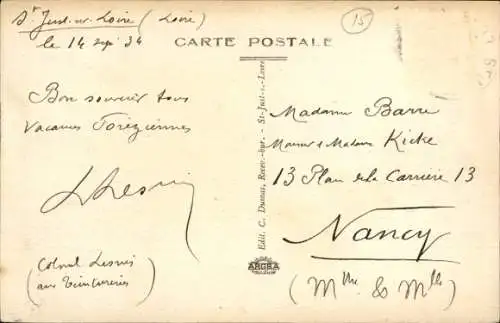 St Just-sur-Loire (Loire)
le 14 sept 34
15
CARTE POSTALE
Bon souvenir tous
Vacances Foréziennes
Madame Barre
Monsieur & Madame Kicke
13 Place de la Carrière 13
Nancy
(Mthe & Mlle)
(Colonel Lesnes
aux Teintureries)
Edit. C. Dumas, Recev.-bur. - St-Just-s.-Loire
ARGRA